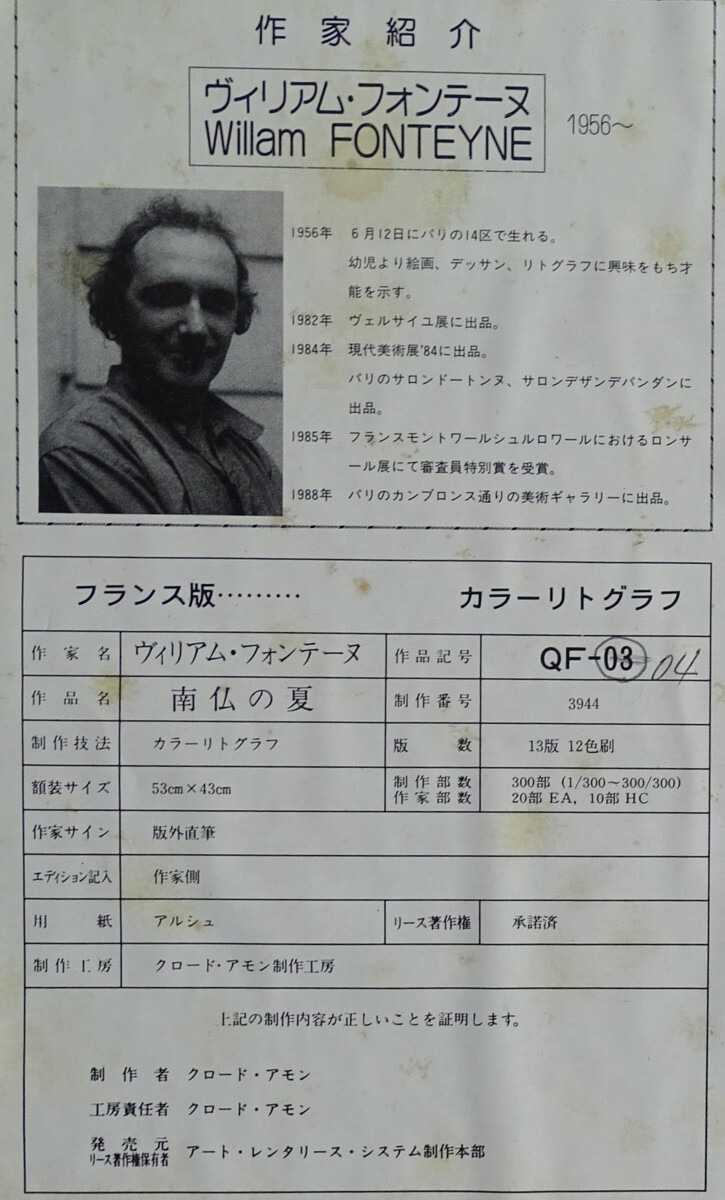 作家紹介
ヴィリアム・フォンテーヌ
Willam FONTEYNE
1956〜
1956年 6月12日にパリの14区で生れる。
幼児より絵画、デッサン、リトグラフに興味をもち才
能を示す。
1982年 ヴェルサイユ展に出品。
1984年 現代美術展'84に出品。
パリのサロンドートンヌ、サロンデザンデパンダンに
出品。
1985年 フランスモントワールシュルロワールにおけるロンサ
ール展にて審査員特別賞を受賞。
1988年 パリのカンブロンヌ通りの美術ギャラリーに出品。
フランス版……… カラーリトグラフ
作家名 ヴィリアム・フォンテーヌ 作品記号 QF-03 04
作品名 南仏の夏 制作番号 3944
制作技法 カラーリトグラフ 版数 13版 12色刷
額装サイズ 53cm×43cm 制作部数 300部 (1/300〜300/300)
作家部数 20部 EA, 10部 HC
作家サイン 版外直筆
エディション記入 作家側
用紙 アルシュ リース著作権 承諾済
制作工房 クロード・アモン制作工房
上記の制作内容が正しいことを証明します。
制作者 クロード・アモン
工房責任者 クロード・アモン
発売元
リース著作権保有者 アート・レンタリース・システム制作本部